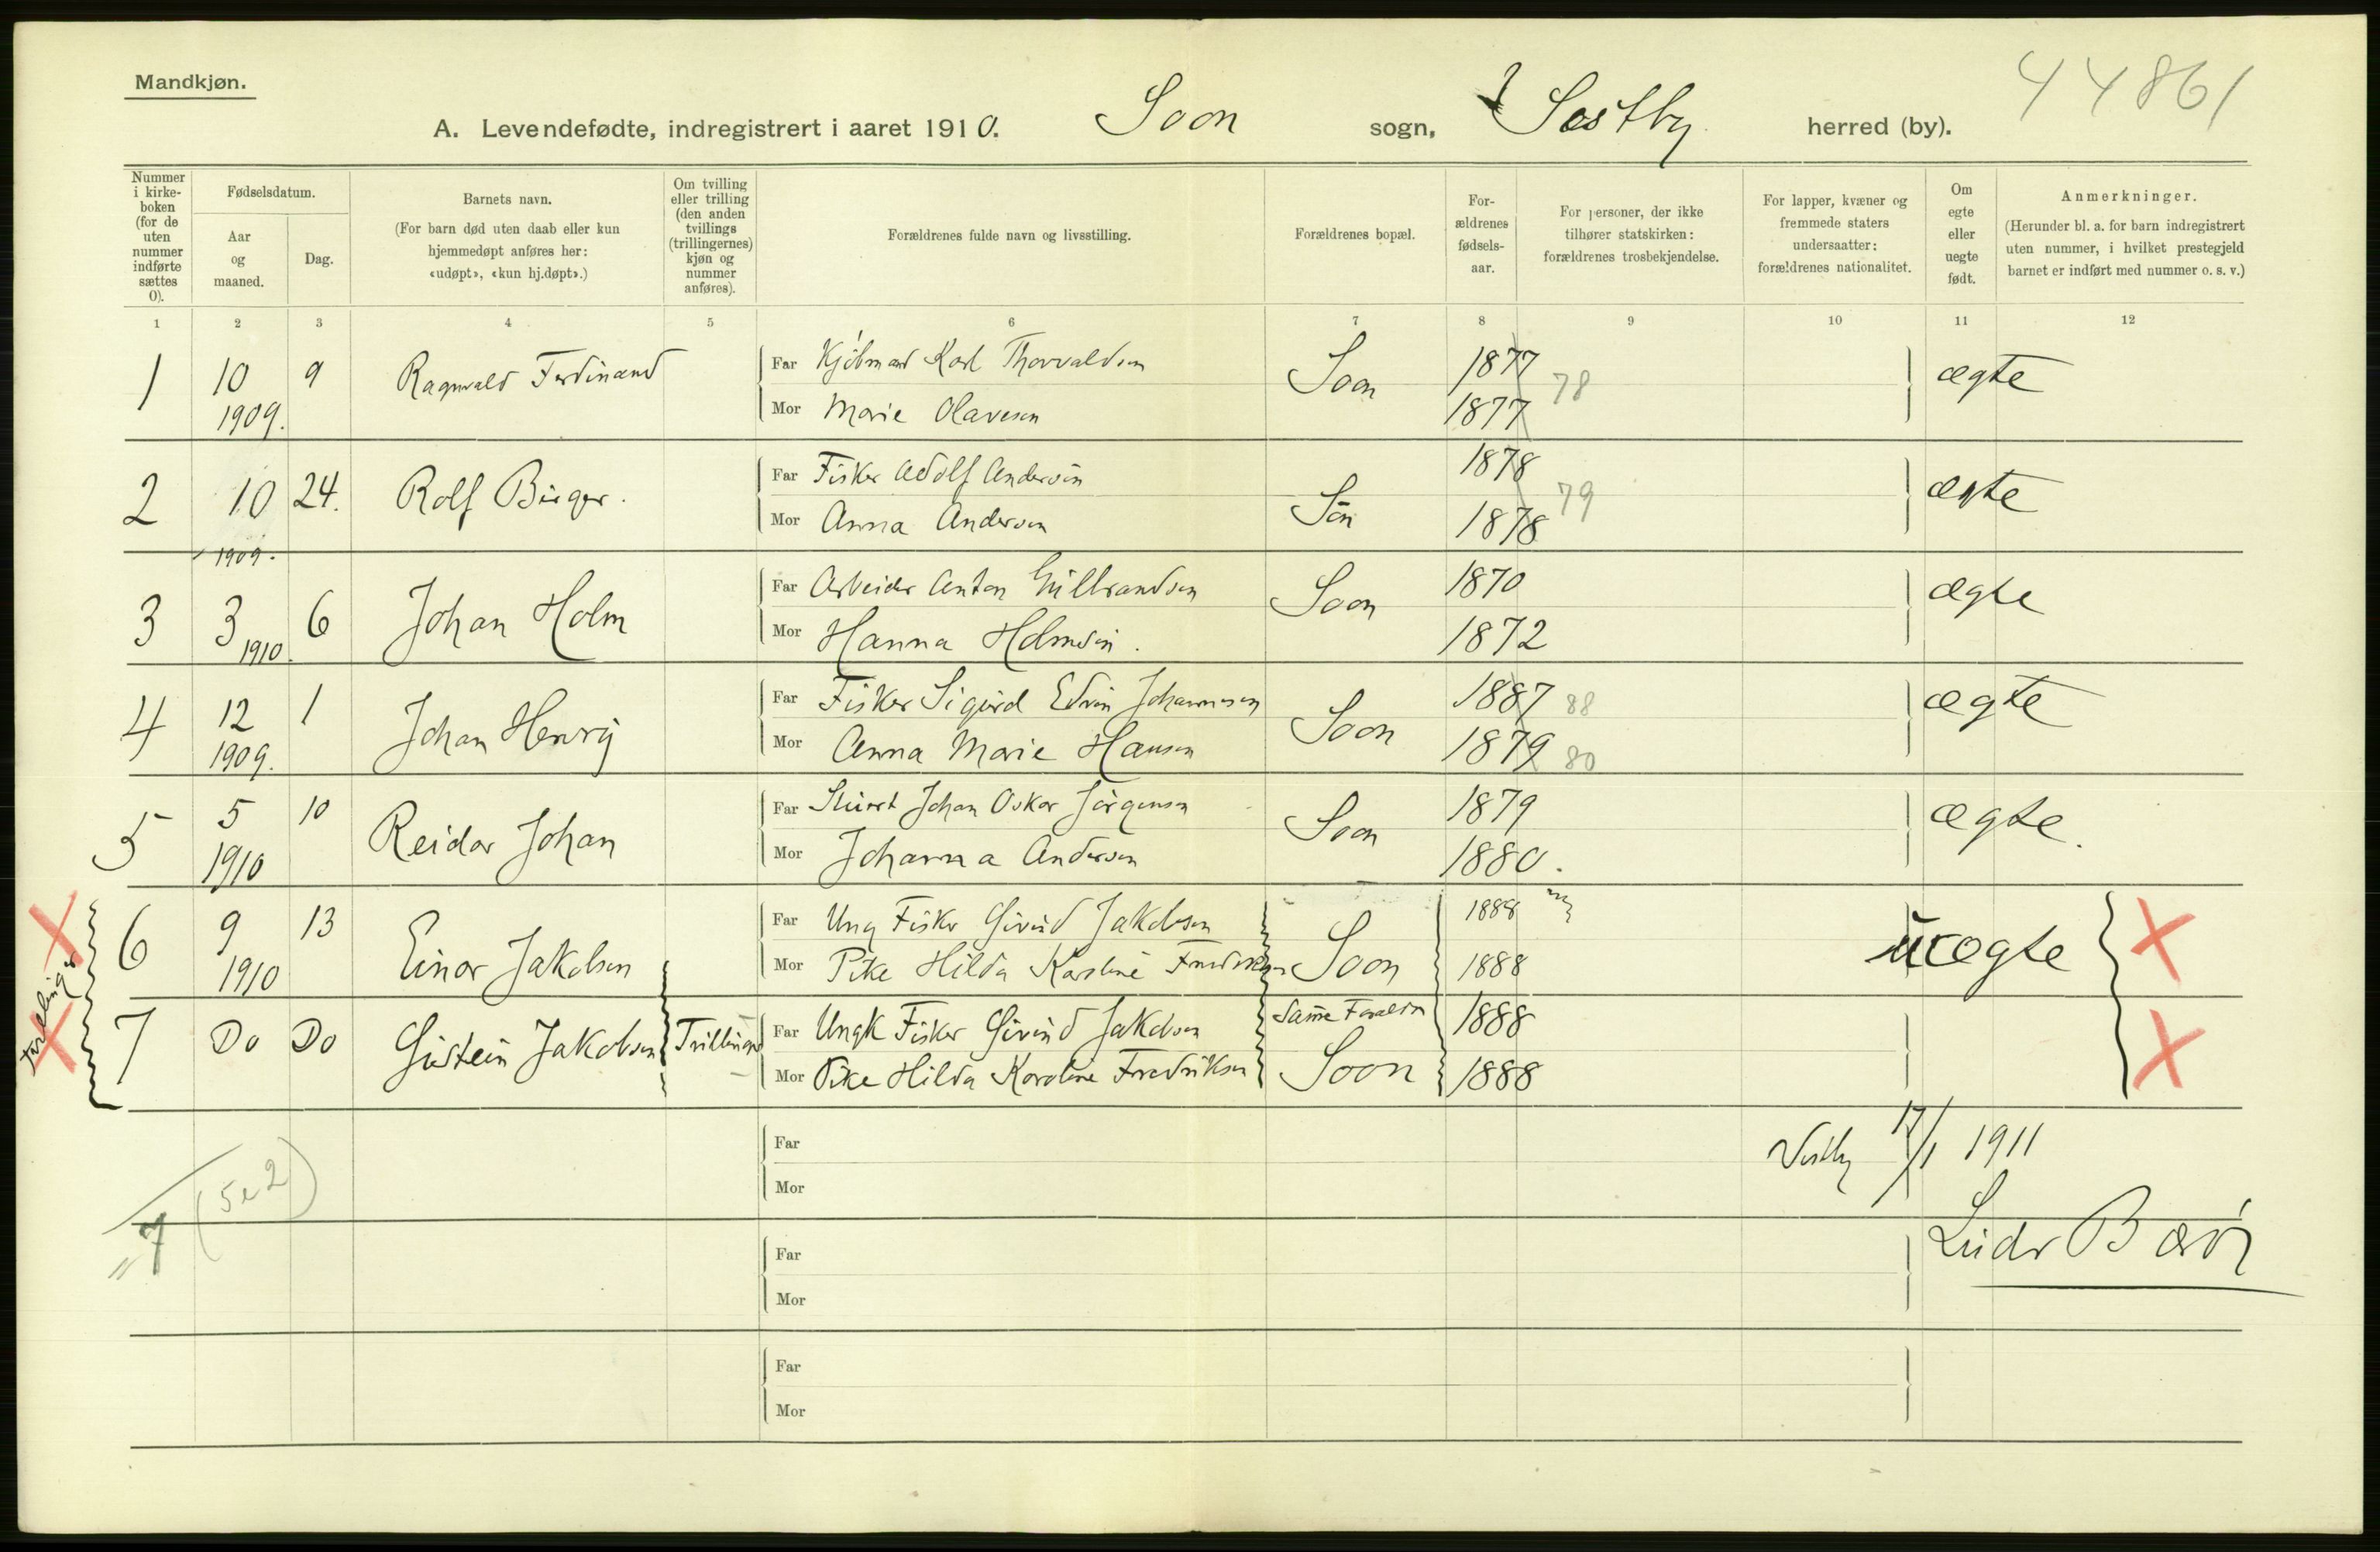 Mandkjøn.
44861
A. Levendefødte, indregistrert i aaret 1910. Soon sogn, herred (by).
Nummer i kirkeboken (for de uten nummer indførte sættes 0).
Fødselsdatum.
Aar og maaned.
Dag.
Barnets navn.
(For barn død uten daab eller kun hjemmedøpt anføres her: «udøpt», «kun hj.døpt».)
Om tvilling eller trilling (den anden tvillings (trillingernes) kjøn og nummer anføres).
Forældrenes fulde navn og livsstilling.
Forældrenes bopæl.
Forældrenes fødselsaar.
For personer, der ikke tilhører statskirken: forældrenes trosbekjendelse.
For lapper, kvæner og fremmede staters undersaatter: forældrenes nationalitet.
Om egte eller uegte født.
Anmerkninger.
(Herunder bl. a. for barn indregistrert uten nummer, i hvilket prestegjeld barnet er indført med nummer o. s. v.)
1 2 3 4 5 6 7 8 9 10 11 12
1 10 1909. 9 Ragnvald Ferdinand Far Kjöbmand Karl Thorvaldsen Soon 1877 78 ægte
Mor Marie Olavesen 1877
2 10 1909. 24. Rolf Birger. Far Fisker Adolf Andersen Son 1878 79 ægte
Mor Anna Andersen 1878
3 3 1910. 6 Johan Holm Far Arbeider Anton Gulbrandsen Soon 1870 ægte
Mor Hanna Holmsen. 1872
4 12 1909. 1 Johan Henry Far Fisker Sigurd Edvin Johannesen Soon 1887 88 ægte
Mor Anna Marie Hansen 1879 80
5 5 1910 10 Reidar Johan Far Johan Oskar Jörgensen Soon 1879 ægte.
Mor Johanna Andersen 1880.
6 9 1910 13 Einar Jakobsen Far Ung Fisker Eivind Jakobsen Soon 1888 uægte
Mor Pike Hilda Karoline Fredriksen 1888
7 Do Do Eistein Jakobsen Far Ungk Fisker Eivind Jakobsen Samme Forældre 1888
Mor Pike Hilda Karoline Fredriksen Soon 1888
Far
Mor
Vestby 17/1 1911
7 (5 2)
Far
Mor
Far
Mor